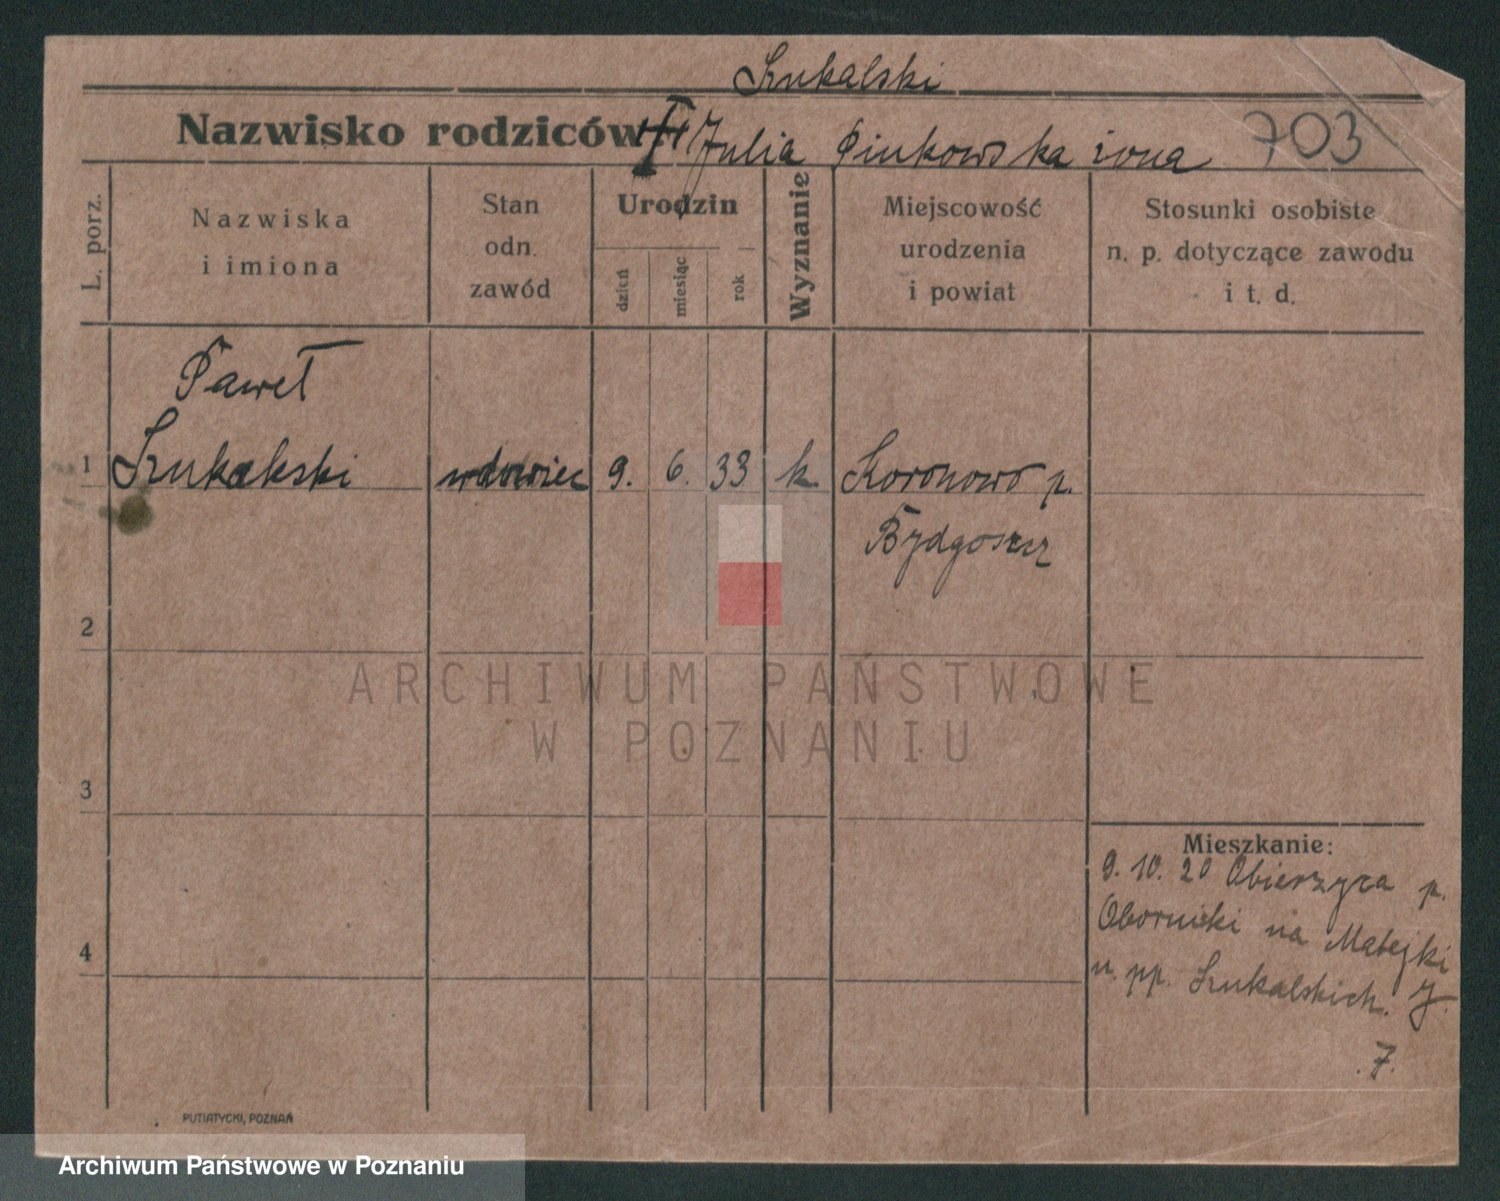 Szukalski
Nazwisko rodziców Julia Pinkowska żona 703
L. porz.
Nazwiska
i imiona
Stan
odn.
zawód
Urodzin
dzień
miesiąc
rok
Wyznanie
Miejscowość
urodzenia
i powiat
Stosunki osobiste
n. p. dotyczące zawodu
i t. d.
Paweł
1 Szukalski wdowiec 9. 6. 33 k. Koronowo p.
Bydgoszcz
2
ARCHIWUM PAŃSTWOWE
W POZNANIU
3
Mieszkanie:
9. 10. 20 Obierzyca p.
Oborniki na Matejki
4
u. pp. Szukalskich.
7.
PUTIATYCKI, POZNAŃ
Archiwum Państwowe w Poznaniu